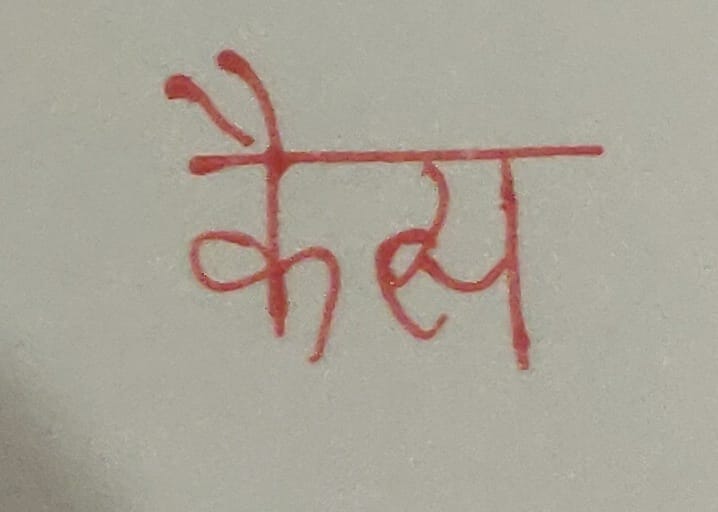 कैस